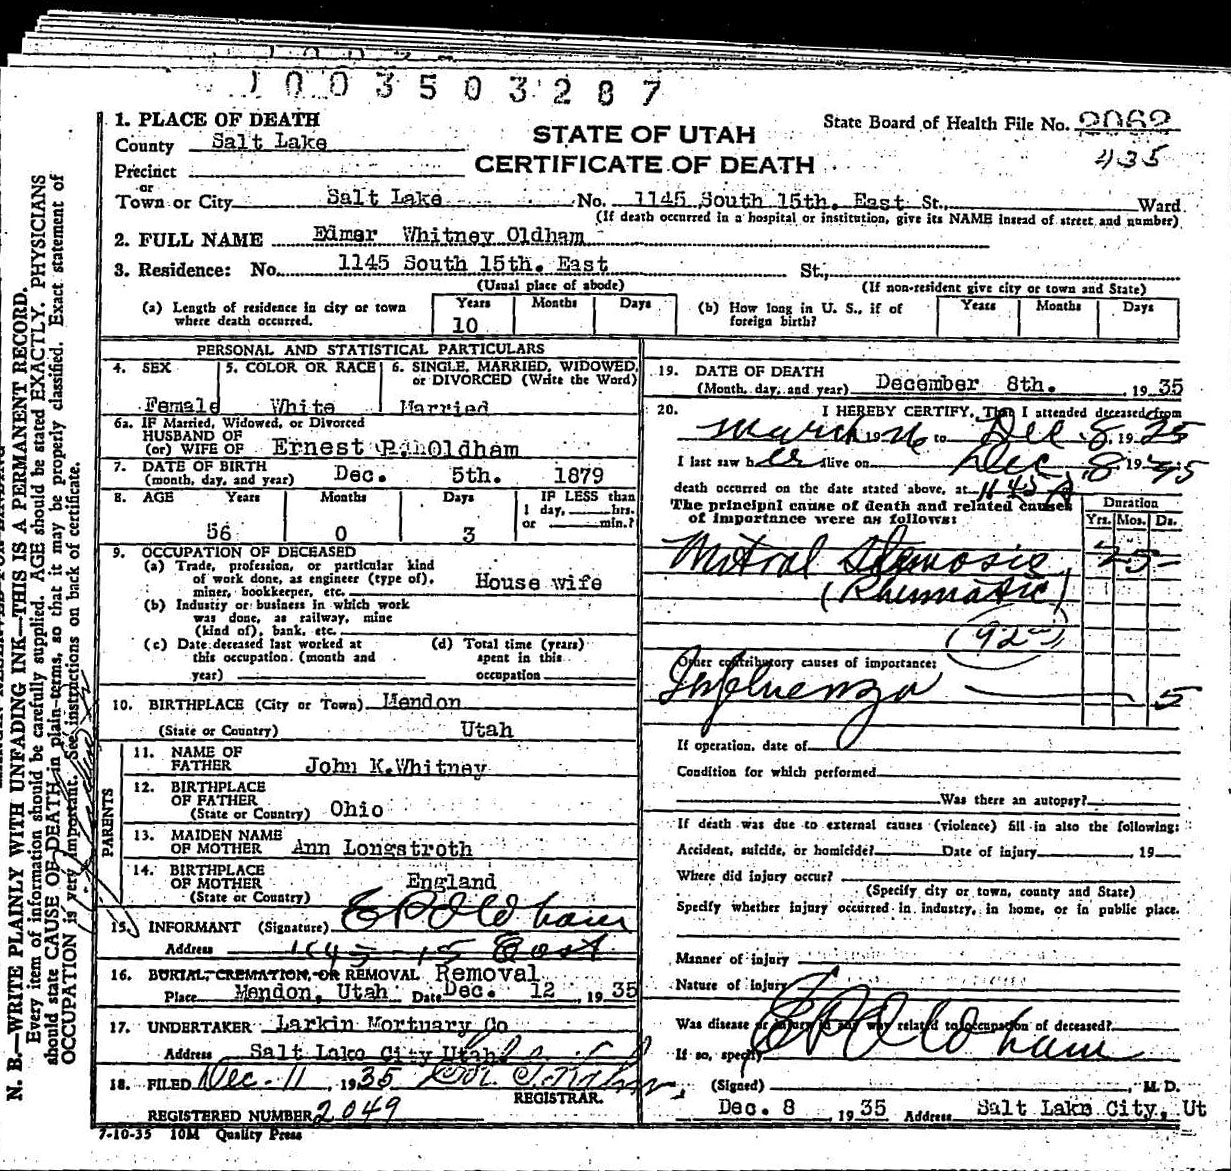 1003503287
1. PLACE OF DEATH
STATE OF UTAH
CERTIFICATE OF DEATH
State Board of Health File No. 2062
435
County Salt Lake
Precinct
or
Town or City Salt Lake No. 1145 South 15th. East St., Ward
(If death occurred in a hospital or institution, give its NAME instead of street and number)
2. FULL NAME Elmer Whitney Oldham
3. Residence: No. 1145 South 15th. East St.,
(Usual place of abode) (If non-resident give city or town and State)
(a) Length of residence in city or town where death occurred. Years 10 Months Days
(b) How long in U. S., if of foreign birth? Years Months Days
PERSONAL AND STATISTICAL PARTICULARS
4. SEX Female
5. COLOR OR RACE White
6. SINGLE, MARRIED, WIDOWED, or DIVORCED (Write the Word) Married
6a. IF Married, Widowed, or Divorced
HUSBAND OF
(or) WIFE OF Ernest P. Oldham
7. DATE OF BIRTH
(month, day, and year) Dec. 5th. 1879
8. AGE Years 56 Months 0 Days 3
IF LESS than
1 day, hrs.
or min.?
9. OCCUPATION OF DECEASED
(a) Trade, profession, or particular kind
of work done, as engineer (type of),
miner, bookkeeper, etc. House wife
(b) Industry or business in which work
was done, as railway, mine
(kind of), bank, etc.
(c) Date deceased last worked at
this occupation. (month and
year)
(d) Total time (years)
spent in this
occupation
10. BIRTHPLACE (City or Town) Mendon
(State or Country) Utah
PARENTS
11. NAME OF
FATHER John K. Whitney
12. BIRTHPLACE
OF FATHER
(State or Country) Ohio
13. MAIDEN NAME
OF MOTHER Ann Longstroth
14. BIRTHPLACE
OF MOTHER
(State or Country) England
15. INFORMANT (Signature) E P Oldham
Address 1145 - 15 East
16. BURIAL, CREMATION, OR REMOVAL Removal
Place Mendon, Utah Date Dec. 12, 1935
17. UNDERTAKER Larkin Mortuary Co
Address Salt Lake City Utah
18. FILED Dec - 11, 1935
REGISTRAR.
REGISTERED NUMBER 2049
7-10-35 10M Quality Press
19. DATE OF DEATH
(Month, day, and year) December 8th. 1935
20. I HEREBY CERTIFY, That I attended deceased from
March 1926 to Dec 8 1935
I last saw her alive on Dec 8 1935
death occurred on the date stated above, at 11 45 A
The principal cause of death and related causes
of importance were as follows:
Duration
Yrs. Mos. Ds.
Mitral Stenosis 25 -
(Rhumatic)
(92
Other contributory causes of importance:
Influenza 5
If operation, date of
Condition for which performed
Was there an autopsy?
If death was due to external causes (violence) fill in also the following:
Accident, suicide, or homicide? Date of injury 19
Where did injury occur?
(Specify city or town, county and State)
Specify whether injury occurred in industry, in home, or in public place.
Manner of injury
Nature of injury
Was disease or injury in any way related to occupation of deceased?
E P Oldham
If so, specify
(Signed) , M. D.
Dec. 8 1935 Address Salt Lake City, Ut
N. B.—WRITE PLAINLY WITH UNFADING INK—THIS IS A PERMANENT RECORD.
Every item of information should be carefully supplied. AGE should be stated EXACTLY. PHYSICIANS
should state CAUSE OF DEATH in plain terms, so that it may be properly classified. Exact statement of
OCCUPATION is very important. See instructions on back of certificate.